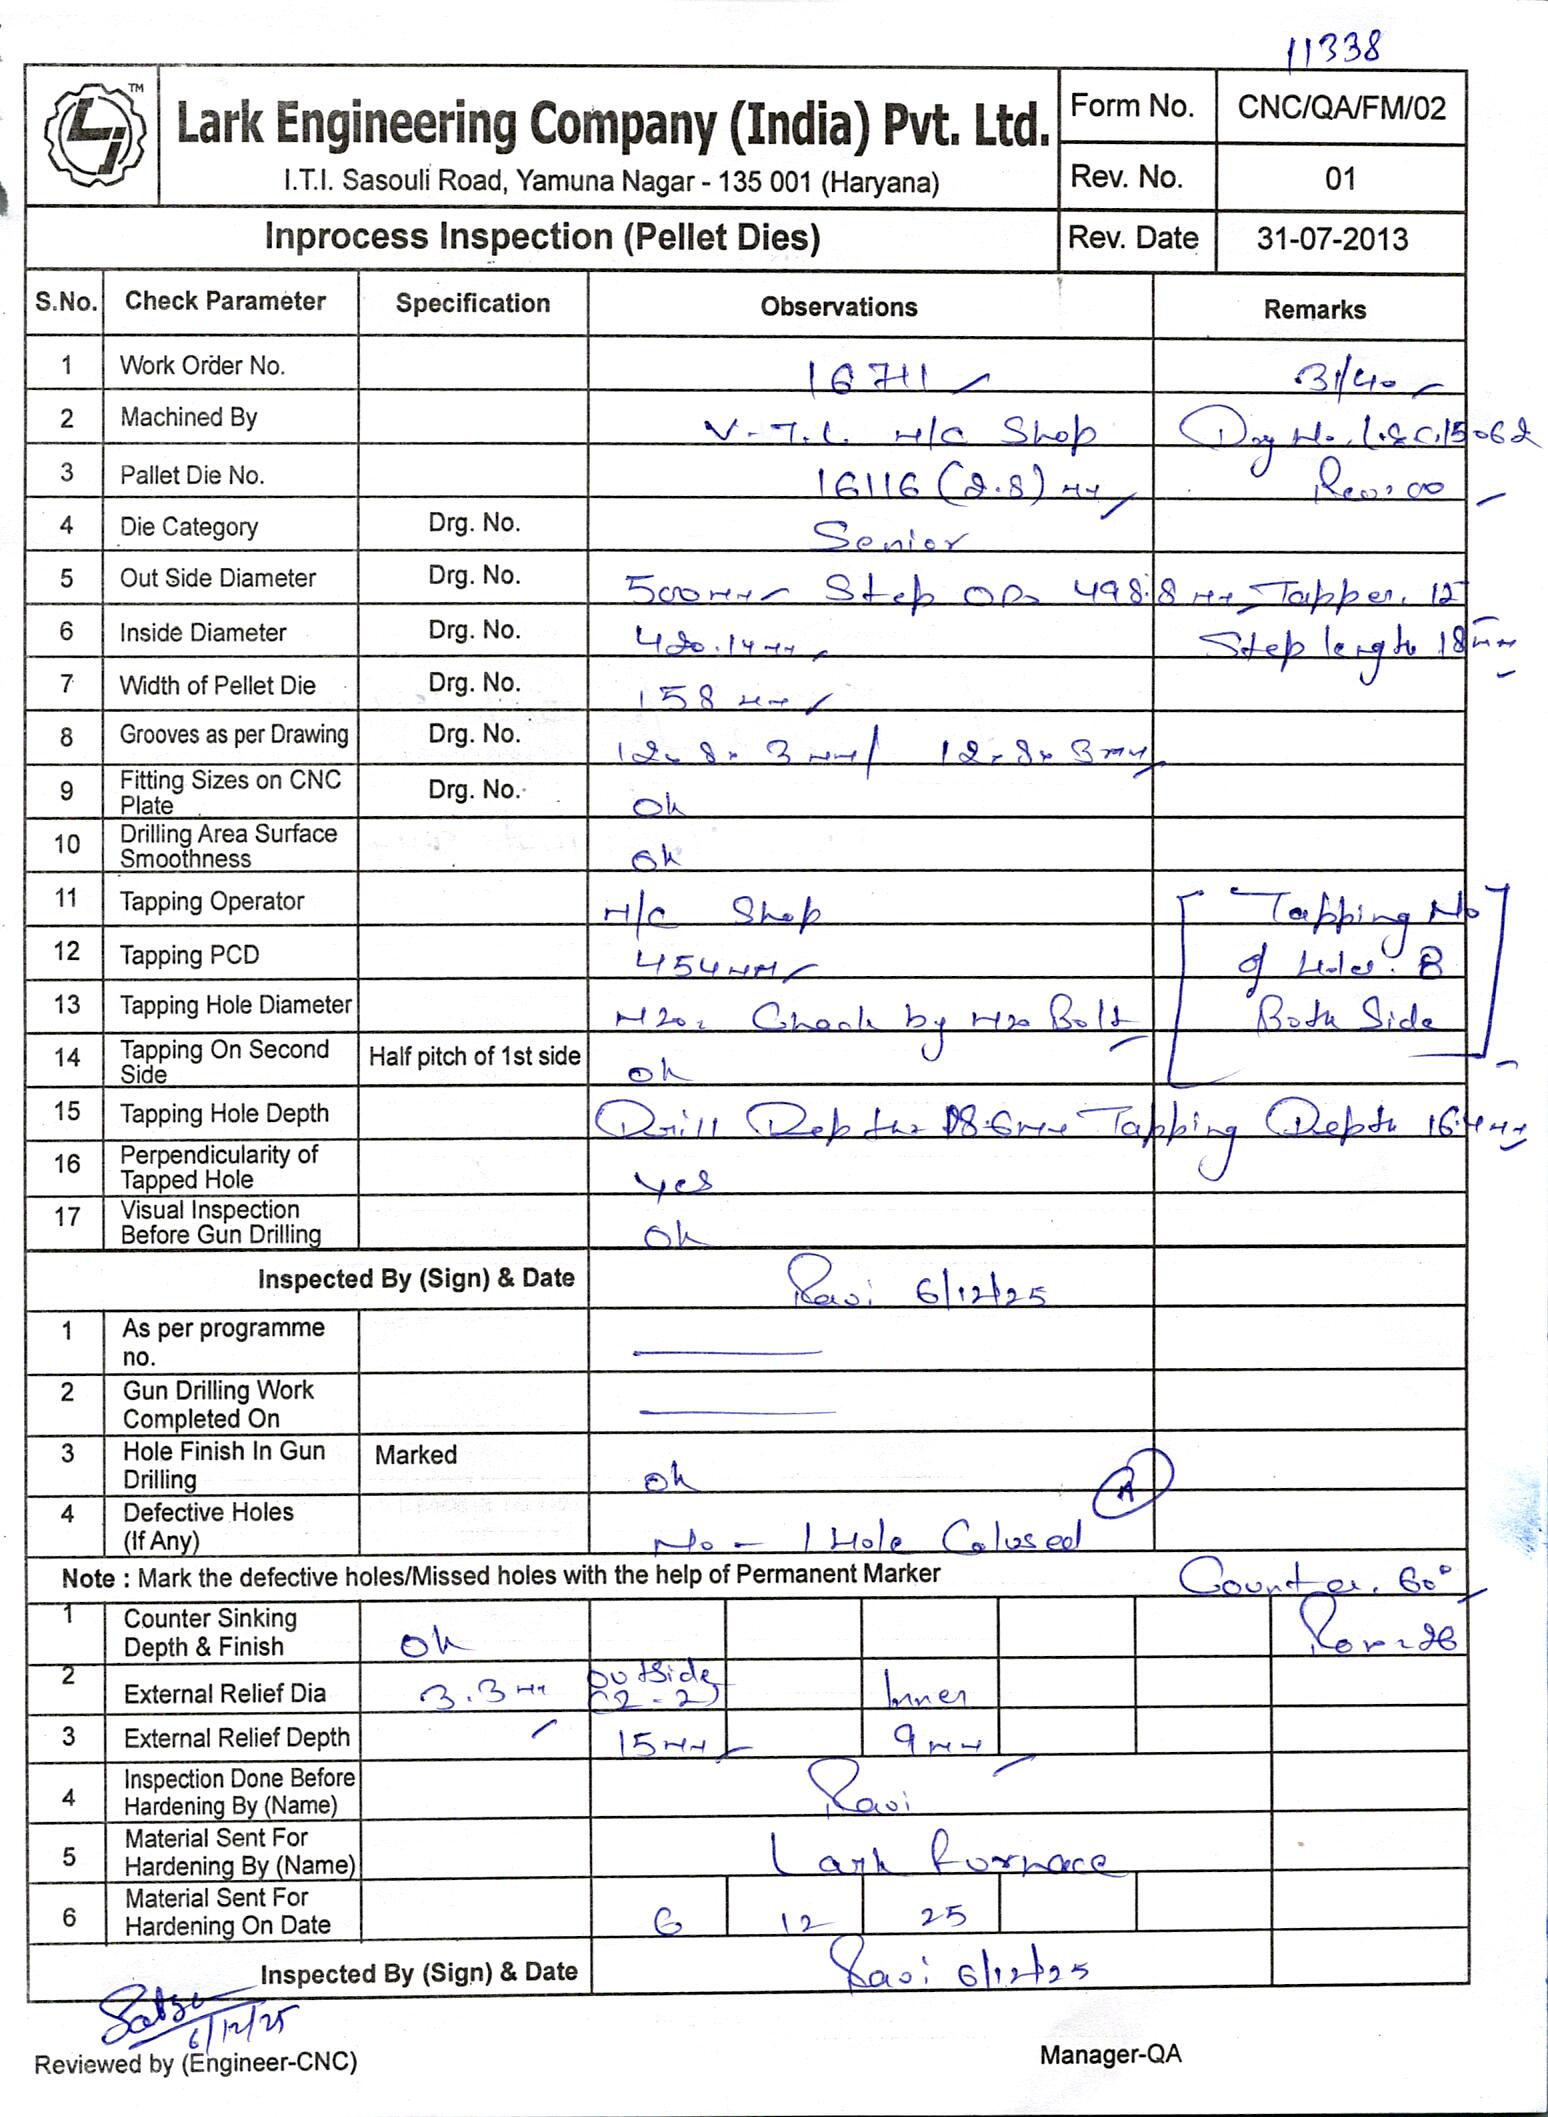 11338
TM
Lark Engineering Company (India) Pvt. Ltd.
I.T.I. Sasouli Road, Yamuna Nagar - 135 001 (Haryana)
Form No. CNC/QA/FM/02
Rev. No. 01
Inprocess Inspection (Pellet Dies) Rev. Date 31-07-2013
S.No. Check Parameter Specification Observations Remarks
1 Work Order No. 16711 31/40
2 Machined By V.T.L. M/C Shop Drg No.
3 Pallet Die No. 16116 (2.8) mm Rev: 00
4 Die Category Drg. No. Senior
5 Out Side Diameter Drg. No. 500mm Step OD. 498.8 mm Tapper.
6 Inside Diameter Drg. No. 420.14mm Step length 18mm
7 Width of Pellet Die Drg. No. 158 mm
8 Grooves as per Drawing Drg. No. 12x8x3mm/ 12x8x3mm
9 Fitting Sizes on CNC Plate Drg. No. Ok
10 Drilling Area Surface Smoothness Ok
11 Tapping Operator M/C Shop Tapping No
12 Tapping PCD 454mm of Holes. 8
13 Tapping Hole Diameter M20. Check by M20 Bolt Both Side
14 Tapping On Second Side Half pitch of 1st side Ok
15 Tapping Hole Depth Drill Depth 18.6mm Tapping Depth 16.4mm
16 Perpendicularity of Tapped Hole Yes
17 Visual Inspection Before Gun Drilling Ok
Inspected By (Sign) & Date Ravi 6/12/25
1 As per programme no.
2 Gun Drilling Work Completed On
3 Hole Finish In Gun Drilling Marked Ok A
4 Defective Holes (If Any) No - 1 Hole Colused
Note : Mark the defective holes/Missed holes with the help of Permanent Marker Counter. 60°
1 Counter Sinking Depth & Finish Ok
2 External Relief Dia 3.3mm outside (2-2) Inner
3 External Relief Depth 15mm 9mm
4 Inspection Done Before Hardening By (Name) Ravi
5 Material Sent For Hardening By (Name) Lark Furnace
6 Material Sent For Hardening On Date 6 12 25
Inspected By (Sign) & Date Ravi 6/12/25
6/12/25
Reviewed by (Engineer-CNC) Manager-QA